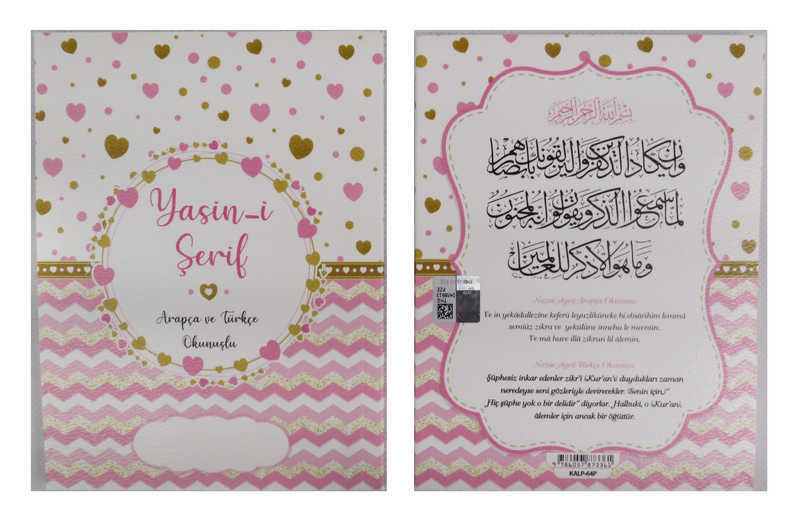 Yasin-i
Şerif
Arapça ve Türkçe
Okunuşlu
بسم الله الرحمن الرحيم
وان يكاد الذين كفروا ليزلقونك بابصارهم
لما سمعوا الذكر ويقولون انه لمجنون
وما هو الا ذكر للعالمين
Nazar Ayeti Arapça Okunuşu
Ve in yekâdullezîne keferû leyuzlikûneke bi ebsârihim lemmâ
semiûz zikra ve yekûlûne innehu le mecnûn.
Ve mâ huve illâ zikrun lil âlemîn.
Nazar Ayeti Türkçe Okunuşu
Şüphesiz inkar edenler zikr'i (Kur'an'ı) duydukları zaman
neredeyse seni gözleriyle devirecekler. (Senin için,)"
Hiç şüphe yok o bir delidir" diyorlar. Halbuki, o (Kur'an),
âlemler için ancak bir öğüttür.
9 786057 873365
KALP-64P